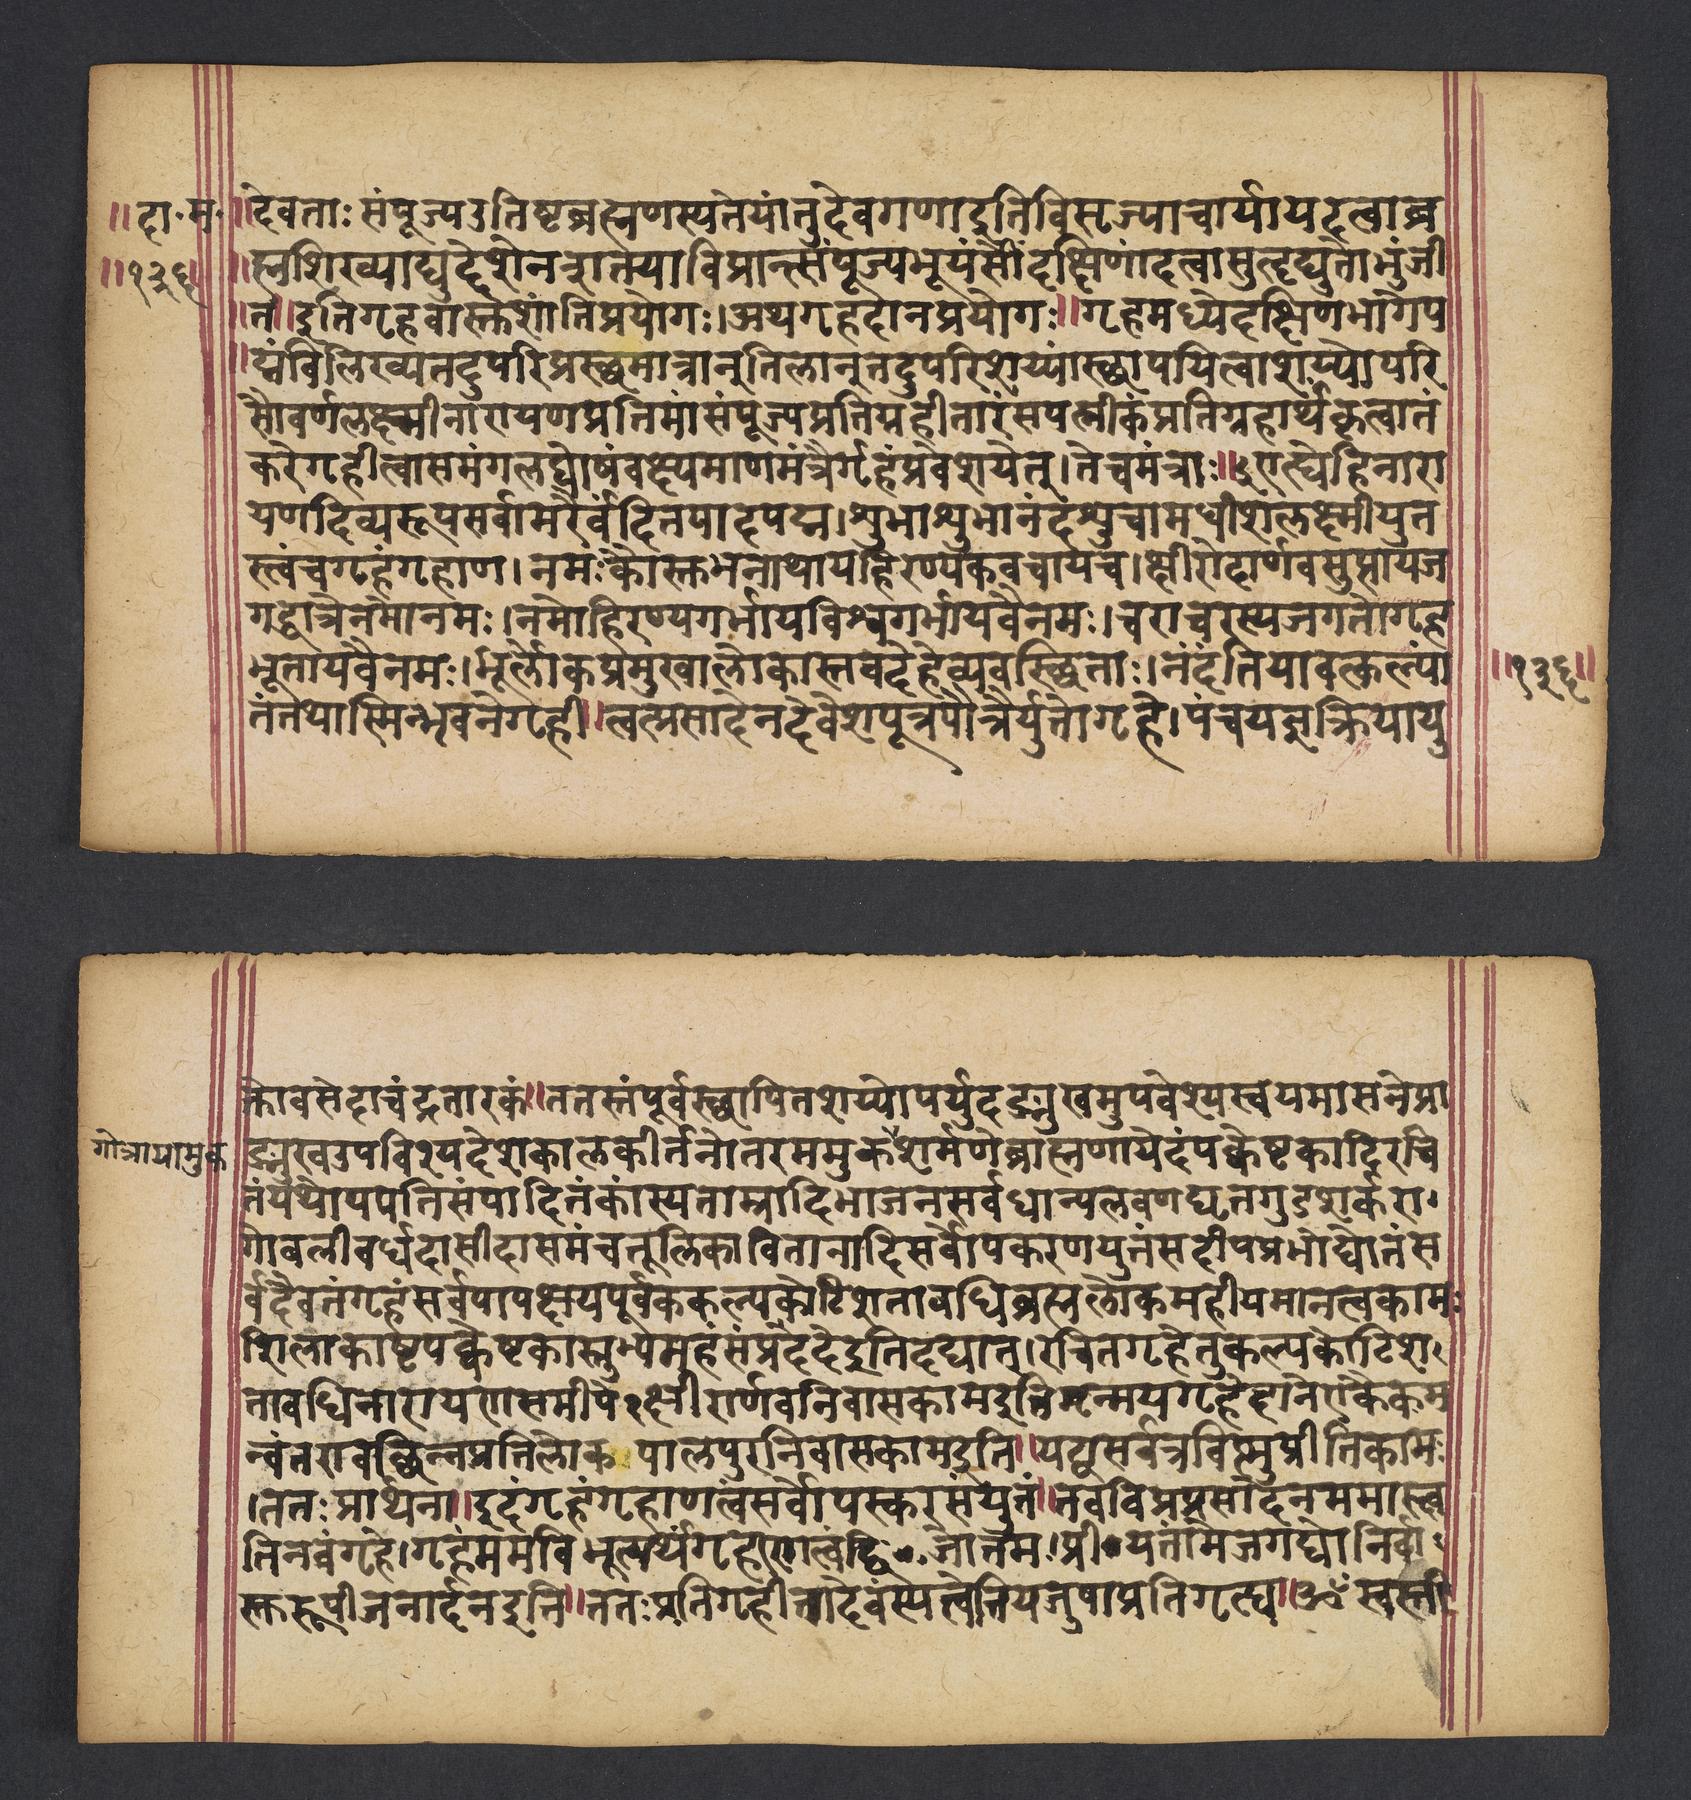 ॥दा॰म॰
॥१३६॥
॥देवताः संपूज्यउतिष्टब्रह्मणस्पतेयांतुदेवगणाइतिविसृज्याचार्यायदत्वाब्र
॥ह्मशिख्याद्युद्देशेनत्रातयाविप्रान्संपूज्यभूयंसींदक्षिणांदत्वासुत्दृद्युतोभुंजी
॥त॥इतिगृहवास्तशांतिप्रयोगः।अथगृहदानप्रयोगः॥गृहमध्येदक्षिणभागेप
॥द्मंविलिख्यतदुपरिप्रस्छमात्रान्तिलान्तदुपरिशय्यांस्छापयित्वाशय्योपरि
सौवर्णलक्ष्मीनारायणप्रतिमांसंपूज्यप्रतिग्रहीतारंसपत्नीकंप्रतिग्रहार्थंकृत्वातं
करेगृहीत्वासमंगलघोषंवक्ष्यमाणमंत्रैर्गृहंप्रवेशयेत्।तेचमंत्राः॥एत्द्येहिनारा
यणदिव्यरूपसर्वामरैर्वंदितपादपद्म।शुभाशुभानंदंशुचामधीशलक्ष्मीयुत
स्त्वंचगृहंगृहाण।नमःकौस्तभनाथायहिरण्यकवचायच।क्षीरोदार्णवसुप्तायज
गद्धात्रेनमोनमः।नमोहिरण्यगर्भायविश्वगर्भायवैनमः।चराचरस्यजगतोगृह
भूतायवैनमः।भूर्लोकप्रमुखालोकास्तवदेहेव्यवस्छिताः।नंदंतियावत्कल्पां
तंतथास्मिन्भवनेगृही॥त्वत्प्रसादेनदेवेशपूत्रपौत्रैर्युतोगृहे।पंचयज्ञक्रियायु
॥१३६॥
क्तोवसेदाचंद्रतारकं॥ततस्तंपूर्वस्छापितशय्योपर्युदङ्मुखमुपवेश्यस्वयमासनेप्रा
गोत्रायामुक
ङ्मुखउपविश्यदेशकालकीर्तनोतरममुकशर्मणेब्राह्मणायेदंपक्वेष्टकादिरचि
तंयथोपपतिसंपादितंकांस्यताम्रादिभाजनसर्वधान्यलवणघृतगुडशर्करा
गोबलीवर्घदासीदासमंचतूलिकावितानादिसर्वोपकरणयुतंसदीपप्रभोद्योतंस
र्वदैवतंगृहंसर्वपापक्षयपूर्वककल्पकोटिशतावधिब्रह्मलोकमहीयमानत्वकामः
शिलाकाष्टपक्वेष्टकास्तुभ्यमहंसंप्रददेइतिदद्यात्।रचितगृहेतुकल्पकोटिश
तावधिनारायणसमीपेक्षीरार्णवनिवासकामइतिमृन्मयगृहेदानेएकैकम
न्वंतरावछिन्नप्रतिलोक पालपुरनिवासकामइति॥यद्वासर्वत्रविष्णुप्रीतिकामः
।ततः प्रार्थना॥इदंगृहंगृहाणत्वंसर्वोपस्करसंयुतं॥तवविप्रप्रसादेनममास्त्व
तिनवंगृहे।गृहंममविभूत्यर्थंगृहाणत्वंद्विजोत्तम।प्रीयतांमेजगद्योनिर्वा
स्तरूपीजनार्दनइति॥ततःप्रतिगृहीतादेवस्यत्वेतियजुषाप्रतिगृत्द्य॥ॐ स्वस्ती